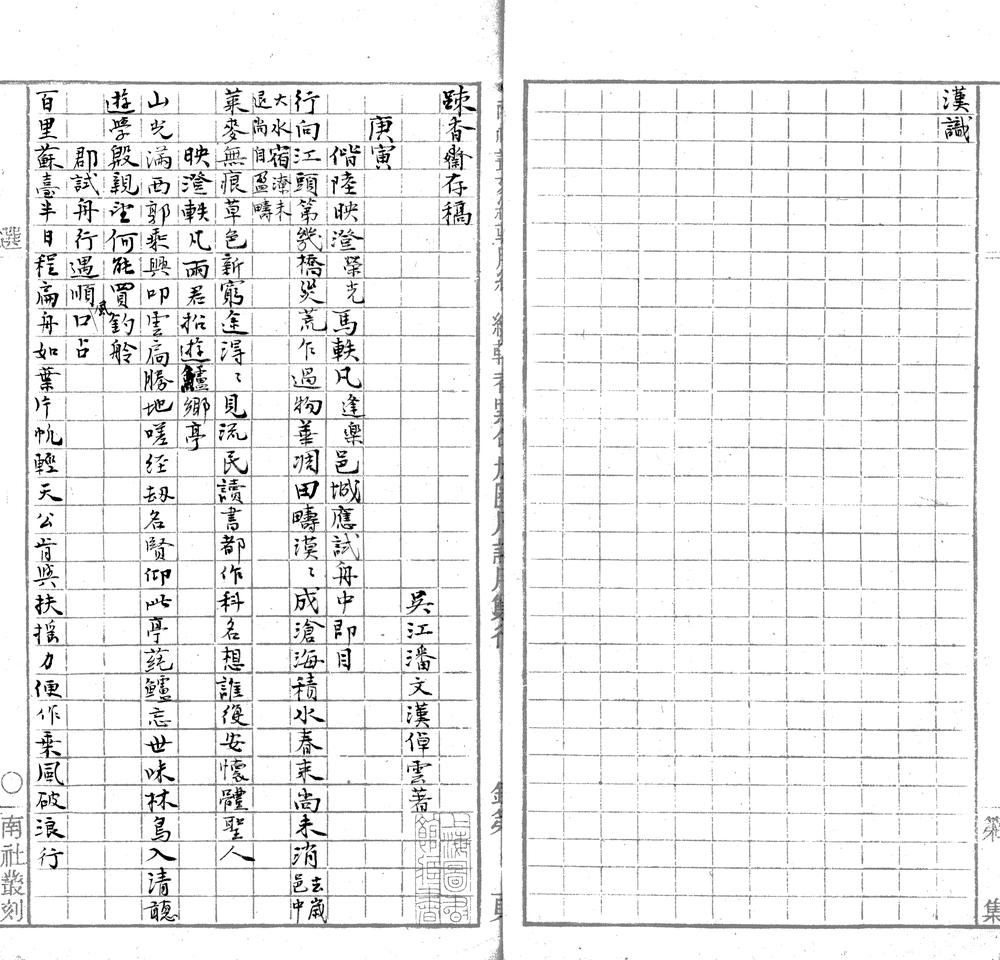 漢識
疎香齋存稿
吳江潘文漢倬雲著
庚寅
偕陸映澄榮光馬軼凡逢樂邑城應試舟中即目
行向江頭第幾橋災荒乍過物華凋田疇漠〻成滄海積水春來尚未消去歲邑中
大水宿潦未退尚自盈疇
菜麥無痕草色新窮途得〻見流民讀書都作科名想誰復安懷體聖人
映澄軼凡兩君招遊鱸鄉亭
山光滿西郭乘興叩雲扃勝地嗟經劫名賢仰此亭蒓鱸忘世味林鳥入清聽
遊學殷親望何能買釣舲
郡試舟行遇順風口占
百里蘇臺半日程扁舟如葉片帆輕天公肯與扶搖力便作乘風破浪行
選
南社叢刻
集